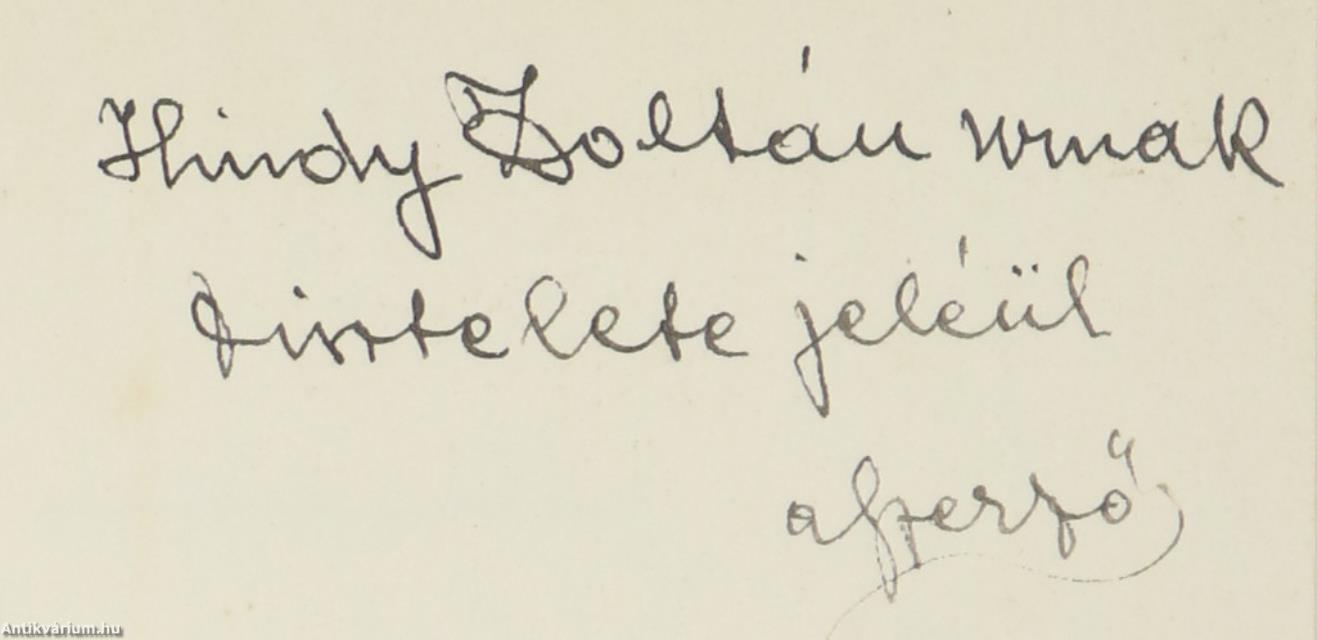 Hindy Zoltán urnak
tisztelete jeléül
a szerző
Antikvárium.hu